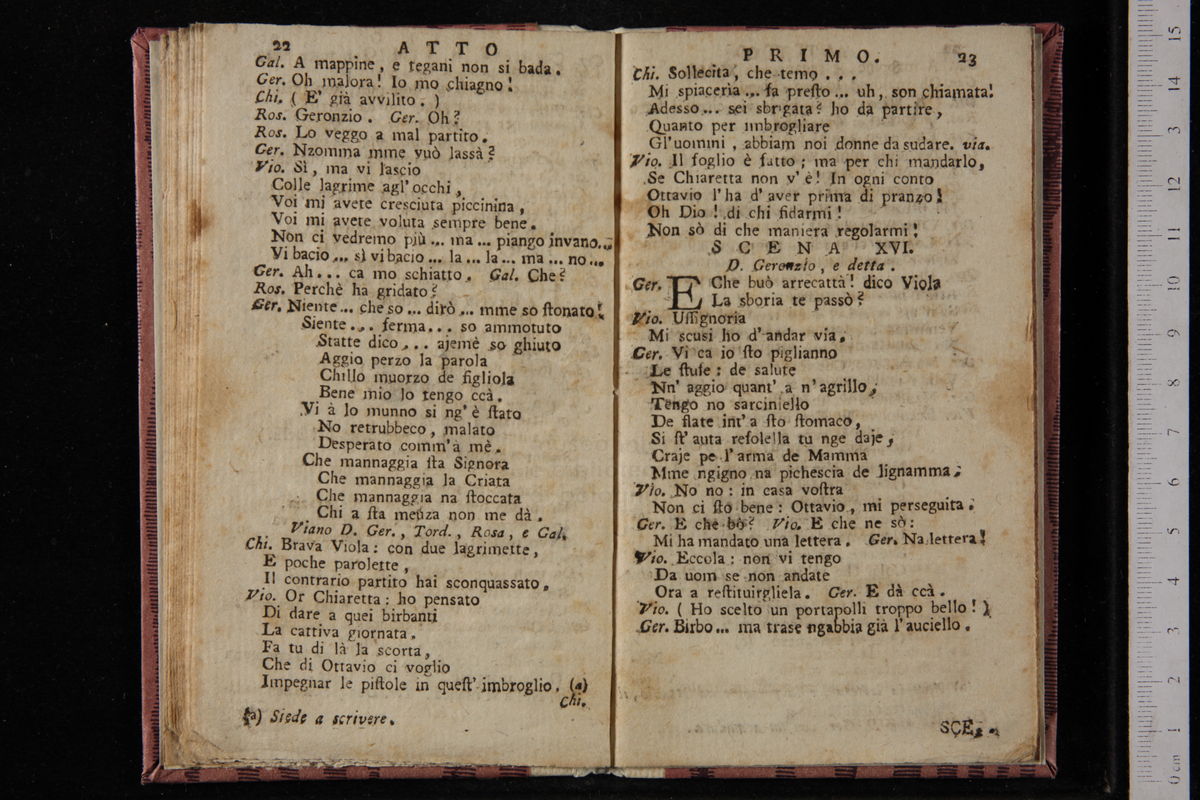 22 ATTO
Gal. A mappine, e tegani non si bada.
Ger. Oh malora! Io mo chiagno!
Chi. ( E' già avvilito. )
Ros. Geronzio. Ger. Oh?
Ros. Lo veggo a mal partito.
Ger. Nzomma mme vuò lassà?
Vio. Sì, ma vi lascio
Colle lagrime agl'occhi,
Voi mi avete cresciuta piccinina,
Voi mi avete voluta sempre bene.
Non ci vedremo più ... ma ... piango invano...
Vi bacio ... sì vi bacio ... la ... la ... ma ... no ...
Ger. Ah ... ca mo schiatto. Gal. Che?
Ros. Perchè ha gridato?
Ger. Niente ... che so ... dirò ... mme so ſtonato!
Siente ... ferma ... so ammotuto
Statte dico ... ajemè so ghiuto
Aggio perzo la parola
Chillo muorzo de figliola
Bene mio lo tengo ccà.
Vi à lo munno si ng' è ſtato
No retrubbeco, malato
Desperato comm' a mè.
Che mannaggia ſta Signora
Che mannaggia la Criata
Che mannaggia na ſtoccata
Chi a ſta meuza non me dà.
Viano D. Ger., Tord., Rosa, e Gal.
Chi. Brava Viola: con due lagrimette,
E poche parolette,
Il contrario partito hai sconquassato.
Vio. Or Chiaretta: ho pensato
Di dare a quei birbanti
La cattiva giornata.
Fa tu di là la scorta,
Che di Ottavio ci voglio
Impegnar le piſtole in queſt' imbroglio. (a)
Chi.
(a) Siede a scrivere.
PRIMO. 23
Chi. Sollecita, che temo ...
Mi spiaceria ... fa preſto ... uh, son chiamata!
Adesso ... sei sbrigata? ho da partire,
Quanto per imbrogliare
Gl'uomini, abbiam noi donne da sudare. via.
Vio. Il foglio è fatto; ma per chi mandarlo,
Se Chiaretta non v' è! In ogni conto
Ottavio l' ha d' aver prima di pranzo!
Oh Dio! di chi fidarmi!
Non sò di che maniera regolarmi!
SCENA XVI.
D. Geronzio, e detta.
Ger. E Che buò arrecattà! dico Viola
La sboria te passò?
Vio. Uſſignoria
Mi scusi ho d' andar via.
Ger. Vi ca io ſto piglianno
Le ſtufe: de salute
Nn' aggio quant' a n' agrillo;
Tengo no sarciniello
De flate int' a ſto ſtomaco,
Si ſt' auta refolella tu nge daje,
Craje pe l' arma de Mamma
Mme ngigno na pichescia de lignamma.
Vio. No no: in casa voſtra
Non ci ſto bene: Ottavio, mi perseguita.
Ger. E che bò? Vio. E che ne sò:
Mi ha mandato una lettera. Ger. Na lettera!
Vio. Eccola: non vi tengo
Da uom se non andate
Ora a reſtituirgliela. Ger. E dà ccà.
Vio. ( Ho scelto un portapolli troppo bello! )
Ger. Birbo... ma trase ngabbia già l' auciello.
SCE.